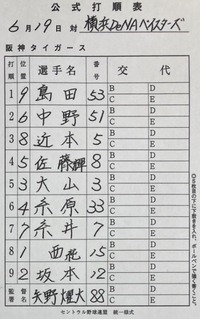 公式打順表
6月19日 対 横浜DeNAベイスターズ
阪神タイガース
打順 位置 選手名 番号 交代
1 9 島田 53 B D C E
2 6 中野 51 B D C E
3 8 近本 5 B D C E
4 5 佐藤輝 8 B D C E
5 3 大山 3 B D C E
6 4 糸原 33 B D C E
7 7 糸井 7 B D C E
8 1 西純 15 B D C E
9 2 坂本 12 B D C E
監督 矢野燿大 88 B D C E
セントラル野球連盟 統一様式